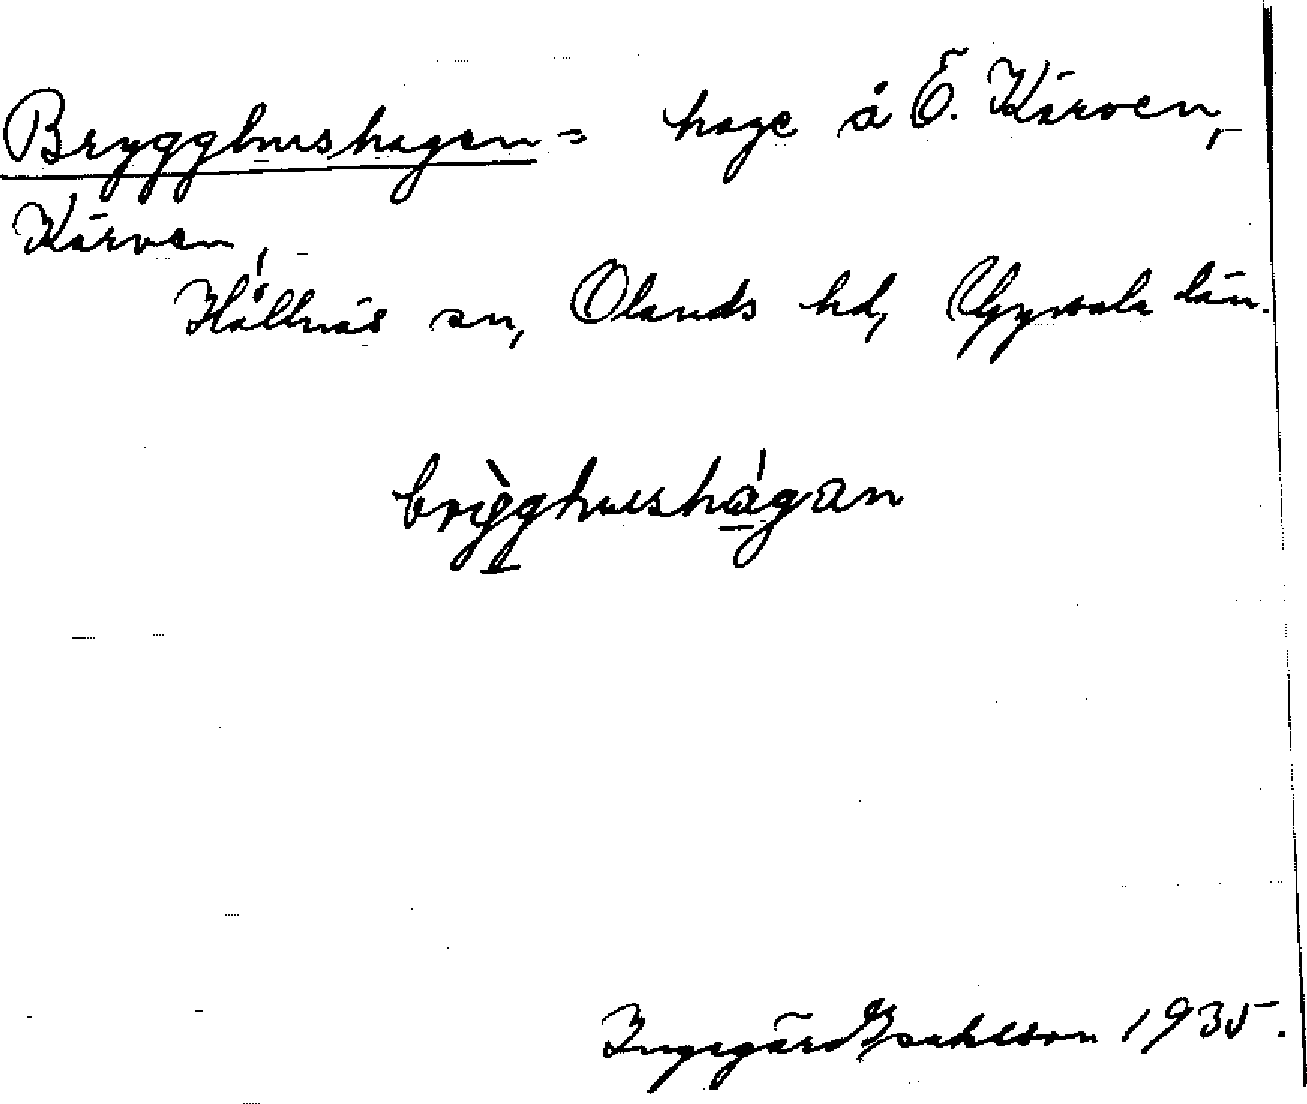 Brygghushagen = hage å Ö. Kärven,
Kärven,
Hållnäs sn, Olands hd, Uppsala län.
brìgghushágan
Ingegärd Isakson 1935.